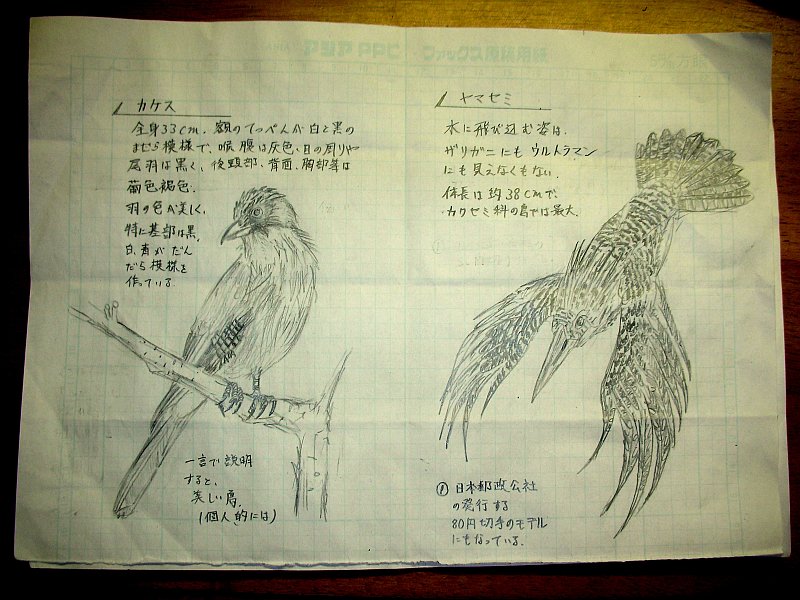 カケス
全身33cm、額のてっぺんが白と黒の
まだら模様で、喉、腹は灰色、目の周りや
尾羽は黒く、後頭部、背面、胸部等は
葡色褐色。
羽の色が美しく、
特に基部は黒、
白、青がだん
だら模様を
作っている。
一言で説明
すると、
美しい鳥。
(個人的には)
ヤマセミ
水に飛び込む姿は、
ザリガニにもウルトラマン
にも見えなくもない。
体長は約38cmで、
カワセミ科の鳥では最大。
① 日本郵政公社
の発行する
80円切手のモデル
にもなっている。
アジア PPC ファックス原稿用紙
5%方眼